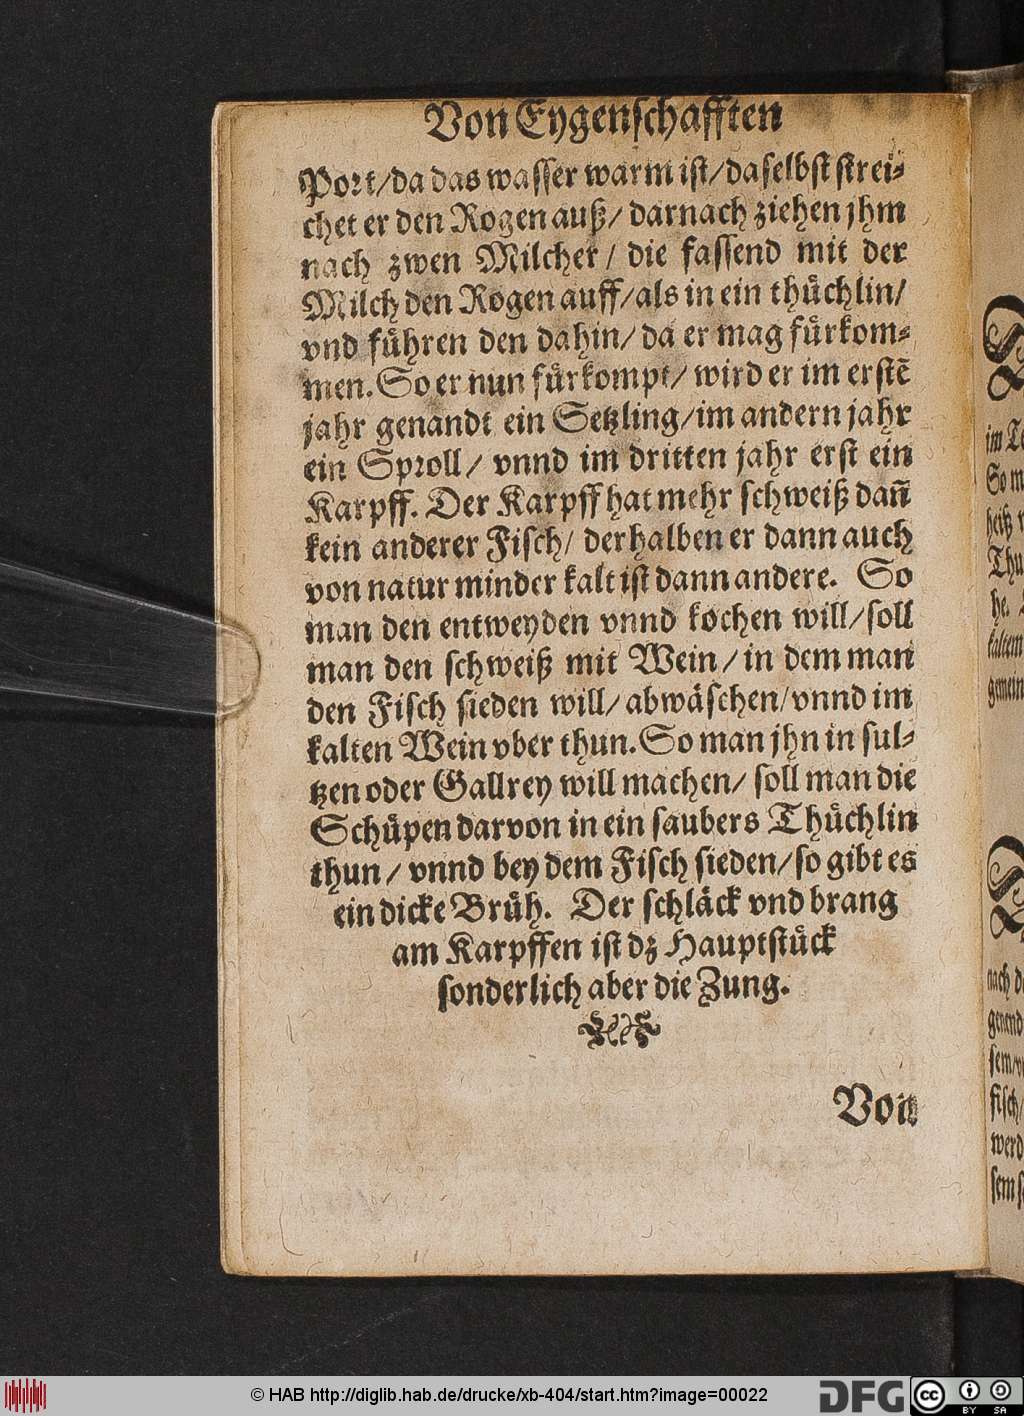 Von Eygenschafften
Port/ da das wasser warm ist/ daselbst strei⸗
chet er den Rogen auß/ darnach ziehen jhm
nach zwen Milcher/ die fassend mit der
Milch den Rogen auff/ als in ein thuͤchlin/
vnd fuͤhren den dahin/ da er mag fuͤrkom⸗
men. So er nun fuͤrkompt/ wird er im erstē
jahr genandt ein Setzling/ im andern jahr
ein Sproll/ vnnd im dritten jahr erst ein
Karpff. Der Karpff hat mehr schweiß dañ
kein anderer Fisch/ derhalben er dann auch
von natur minder kalt ist dann andere. So
man den entweyden vnnd kochen will/ soll
man den schweiß mit Wein/ in dem man
den Fisch sieden will/ abwäschen/ vnnd im
kalten Wein vber thun. So man jhn in sul⸗
tzen oder Gallrey will machen/ soll man die
Schuͤpen darvon in ein saubers Thuͤchlin
thun/ vnnd bey dem Fisch sieden/ so gibt es
ein dicke Bruͤh. Der schläck vnd brang
am Karpffen ist dz Hauptstuͤck
sonderlich aber die Zung.
Von
im
So m
heiß
Thu
he.
kaltem
gemein
nach
genend
sem
fisch/
werd
sem
© HAB http://diglib.hab.de/drucke/xb-404/start.htm?image=00022
DFG
cc
BY SA